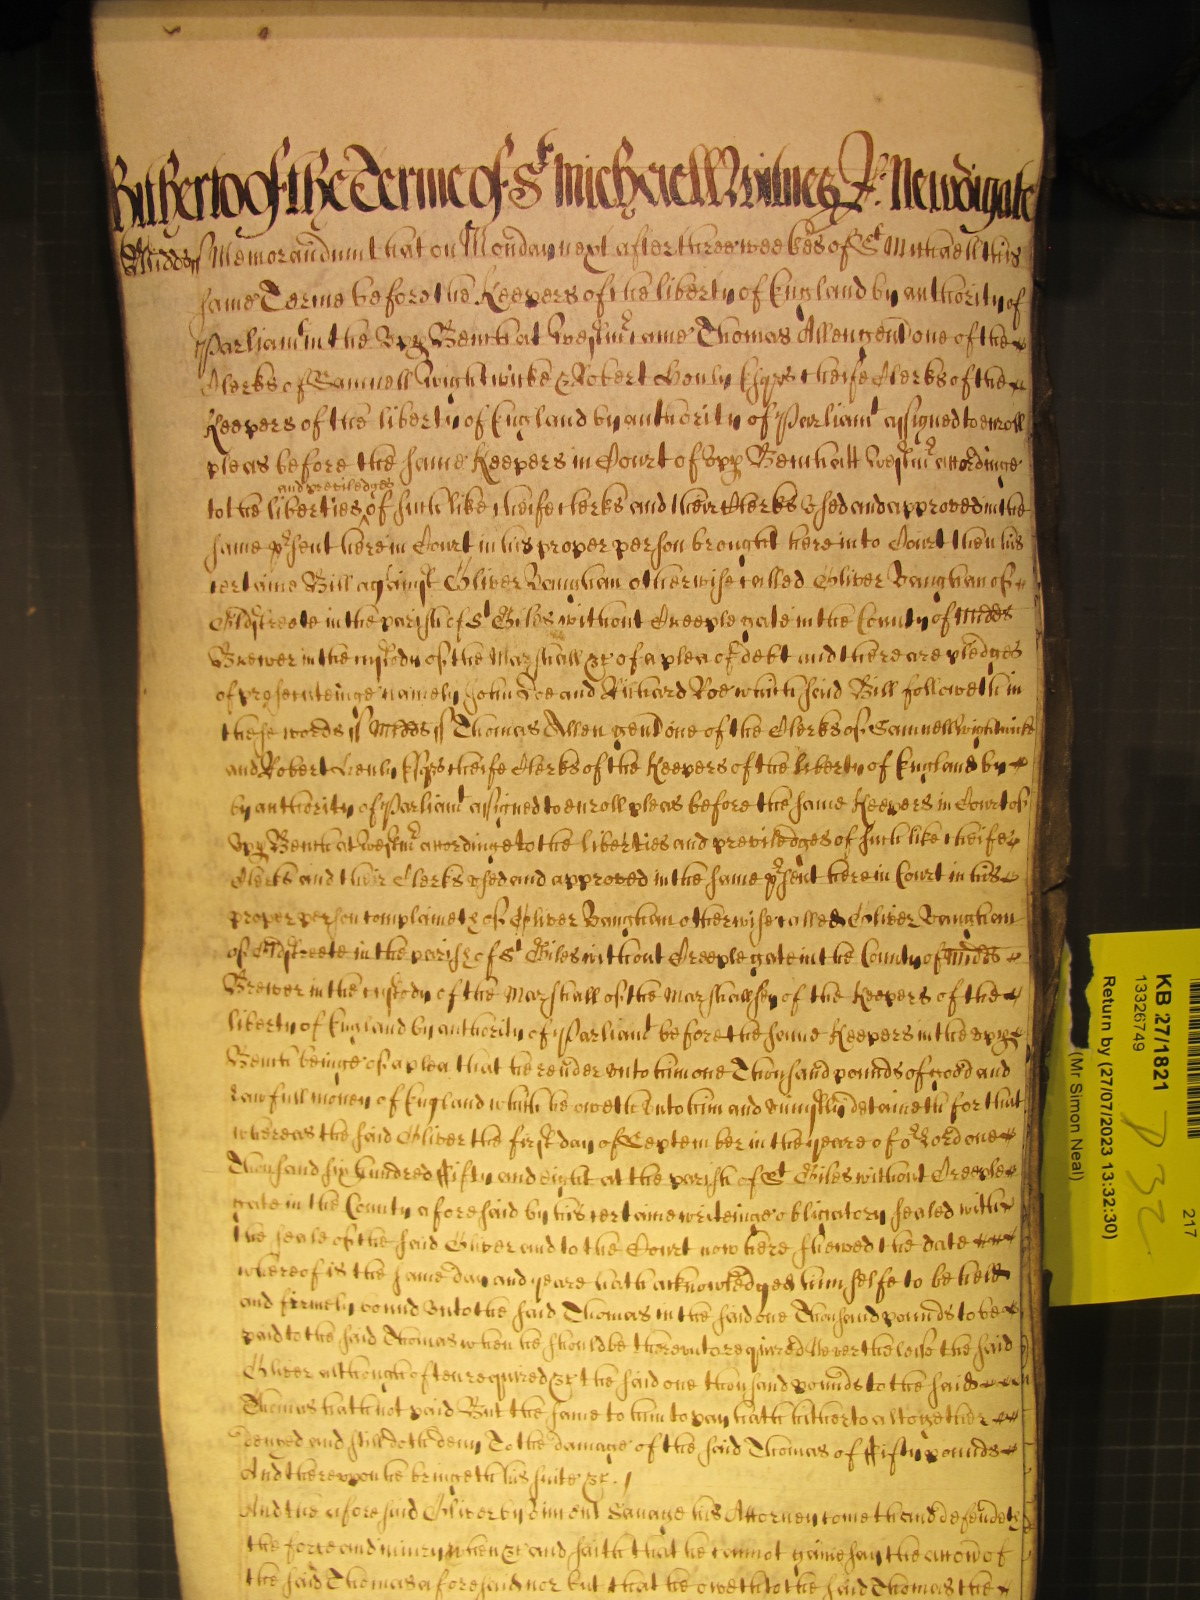 Hitherto of the Terme of St Michaell Witnes R: Newdigate
Midds ss Memorandum that on Monday next after three weekes of St Michaell this
same Terme before the Keepers of the liberty of England by authority of
Parliamt in the Upp Bench at Westmr came Thomas Allen gent one of the
Clerks of Samuell Wightwicke & Robert Henly Esqrs cheife Clerks of the
Keepers of the liberty of England by authority of Parliamt assigned to enroll
pleas before the same Keepers in Court of Upp Bench att Westmr accordinge
and previledges
to the liberties of such like cheife clerks and their Clerks used and approved in the
same prsent here in Court in his proper person brought here into Court then his
certaine Bill against Oliver Vaughan otherwise called Oliver Vaughan of
Oldstreete in the parish of St Giles without Creeplegate in the County of Midds
Brewer in the custody of the Marshall &c of a plea of debt and there are pledges
of prosecuteinge namely John Doe and Richard Roe which said Bill followeth in
these words ss Midds ss Thomas Allen gent one of the Clerks of Samuell Wightwicke
and Robert Henly Esqrs cheife Clerks of the Keepers of the liberty of England by
by authority of Parliamt assigned to enroll pleas before the same Keepers in Court of
Upp Bench at Westmr accordinge to the liberties and previledges of such like cheife
Clerks and their Clerks used and approved in the same prsent here in Court in his
proper person complaineth of Oliver Vaughan otherwise called Oliver Vaughan
of Oldstreete in the parish of St Giles without Creeplegate in the County of Midds
Brewer in the custody of the Marshall of the Marshallsey of the Keepers of the
liberty of England by authority of Parliamt before the same Keepers in the upp
Bench beinge of a plea that he render unto him one Thousand pounds of good and
lawfull money of England which he oweth unto him and uniustly detaineth for that
whereas the said Oliver the first day of September in the yeare of or Lord one
Thousand six hundred ffifty and eight at the parish of St Giles without Creeple
gate in the County aforesaid by his certaine writeinge obligatory sealed with
the seale of the said Oliver and to the Court now here shewed the date
whereof is the same day and yeare hath acknowledged himselfe to be held
and firmely bound unto the said Thomas in the said one Thousand pounds to be
paid to the said Thomas when he should be thereunto required Neverthelesse the said
Oliver although often required &c the said one thousand pounds to the said
Thomas hath not paid But the same to him to pay hath hitherto altogether
denyed and still doth deny To the damage of the said Thomas of ffifty pounds
And thereuppon he bringeth his suite &c.
And the aforesaid Oliver by Savage his Attorney cometh and defendeth
the force and iniury when &c and saith that he cannot gainesay the accon of
the said Thomas aforesaid nor but that he oweth to the said Thomas the
217
KB 27/1821
13326749
Return by (27/07/2023 13:32:30)
(Mr Simon Neal)